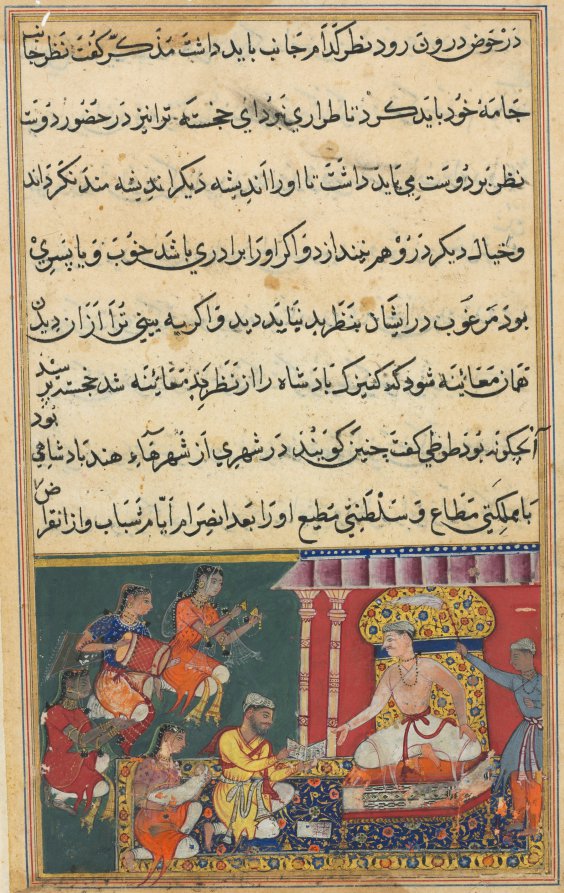 در حوض درون رود نظر کدام جانب باید داشت مذکر گفت نظر جانب
جامه خود باید کرد تا طراری نبرد ای خجسته ترا نیز در حضور دوست
نظر بر دوست می باید داشت تا او را اندیشه دیگر اندیشه مند نکرداند
و خیال دیکر در و هم نیندازد و اکر او را برادری باشد خوب و یا پسری
بود مرغوب در ایشان بنظر بد نباید دید و اکر به بینی ترا از ان دیدن
همان معائنه شود که کنیزک بادشاه را از نظر بد معائنه شد خجسته پرسید
آنچکونه بود طوطی کفت چنین کویند در شهری از شهرهاء هند بادشاهی بود
با مملکتی مطاع و سلطنتی مطیع او را بعد انصرام ایام شباب و از انقراض